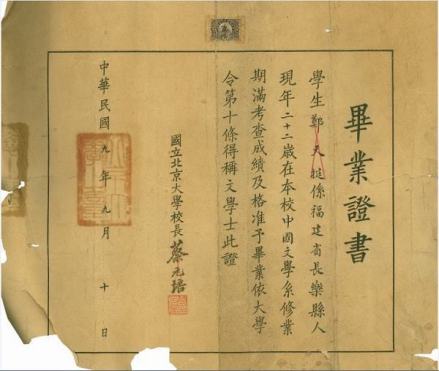 畢業證書
學生鄭天挺係福建省長樂縣人
現年二十二歲在本校中國文學系修業
期滿考查成績及格准予畢業依大學
令第十條得稱文學士此證
國立北京大學校長蔡元培
中華民國九年九月十日